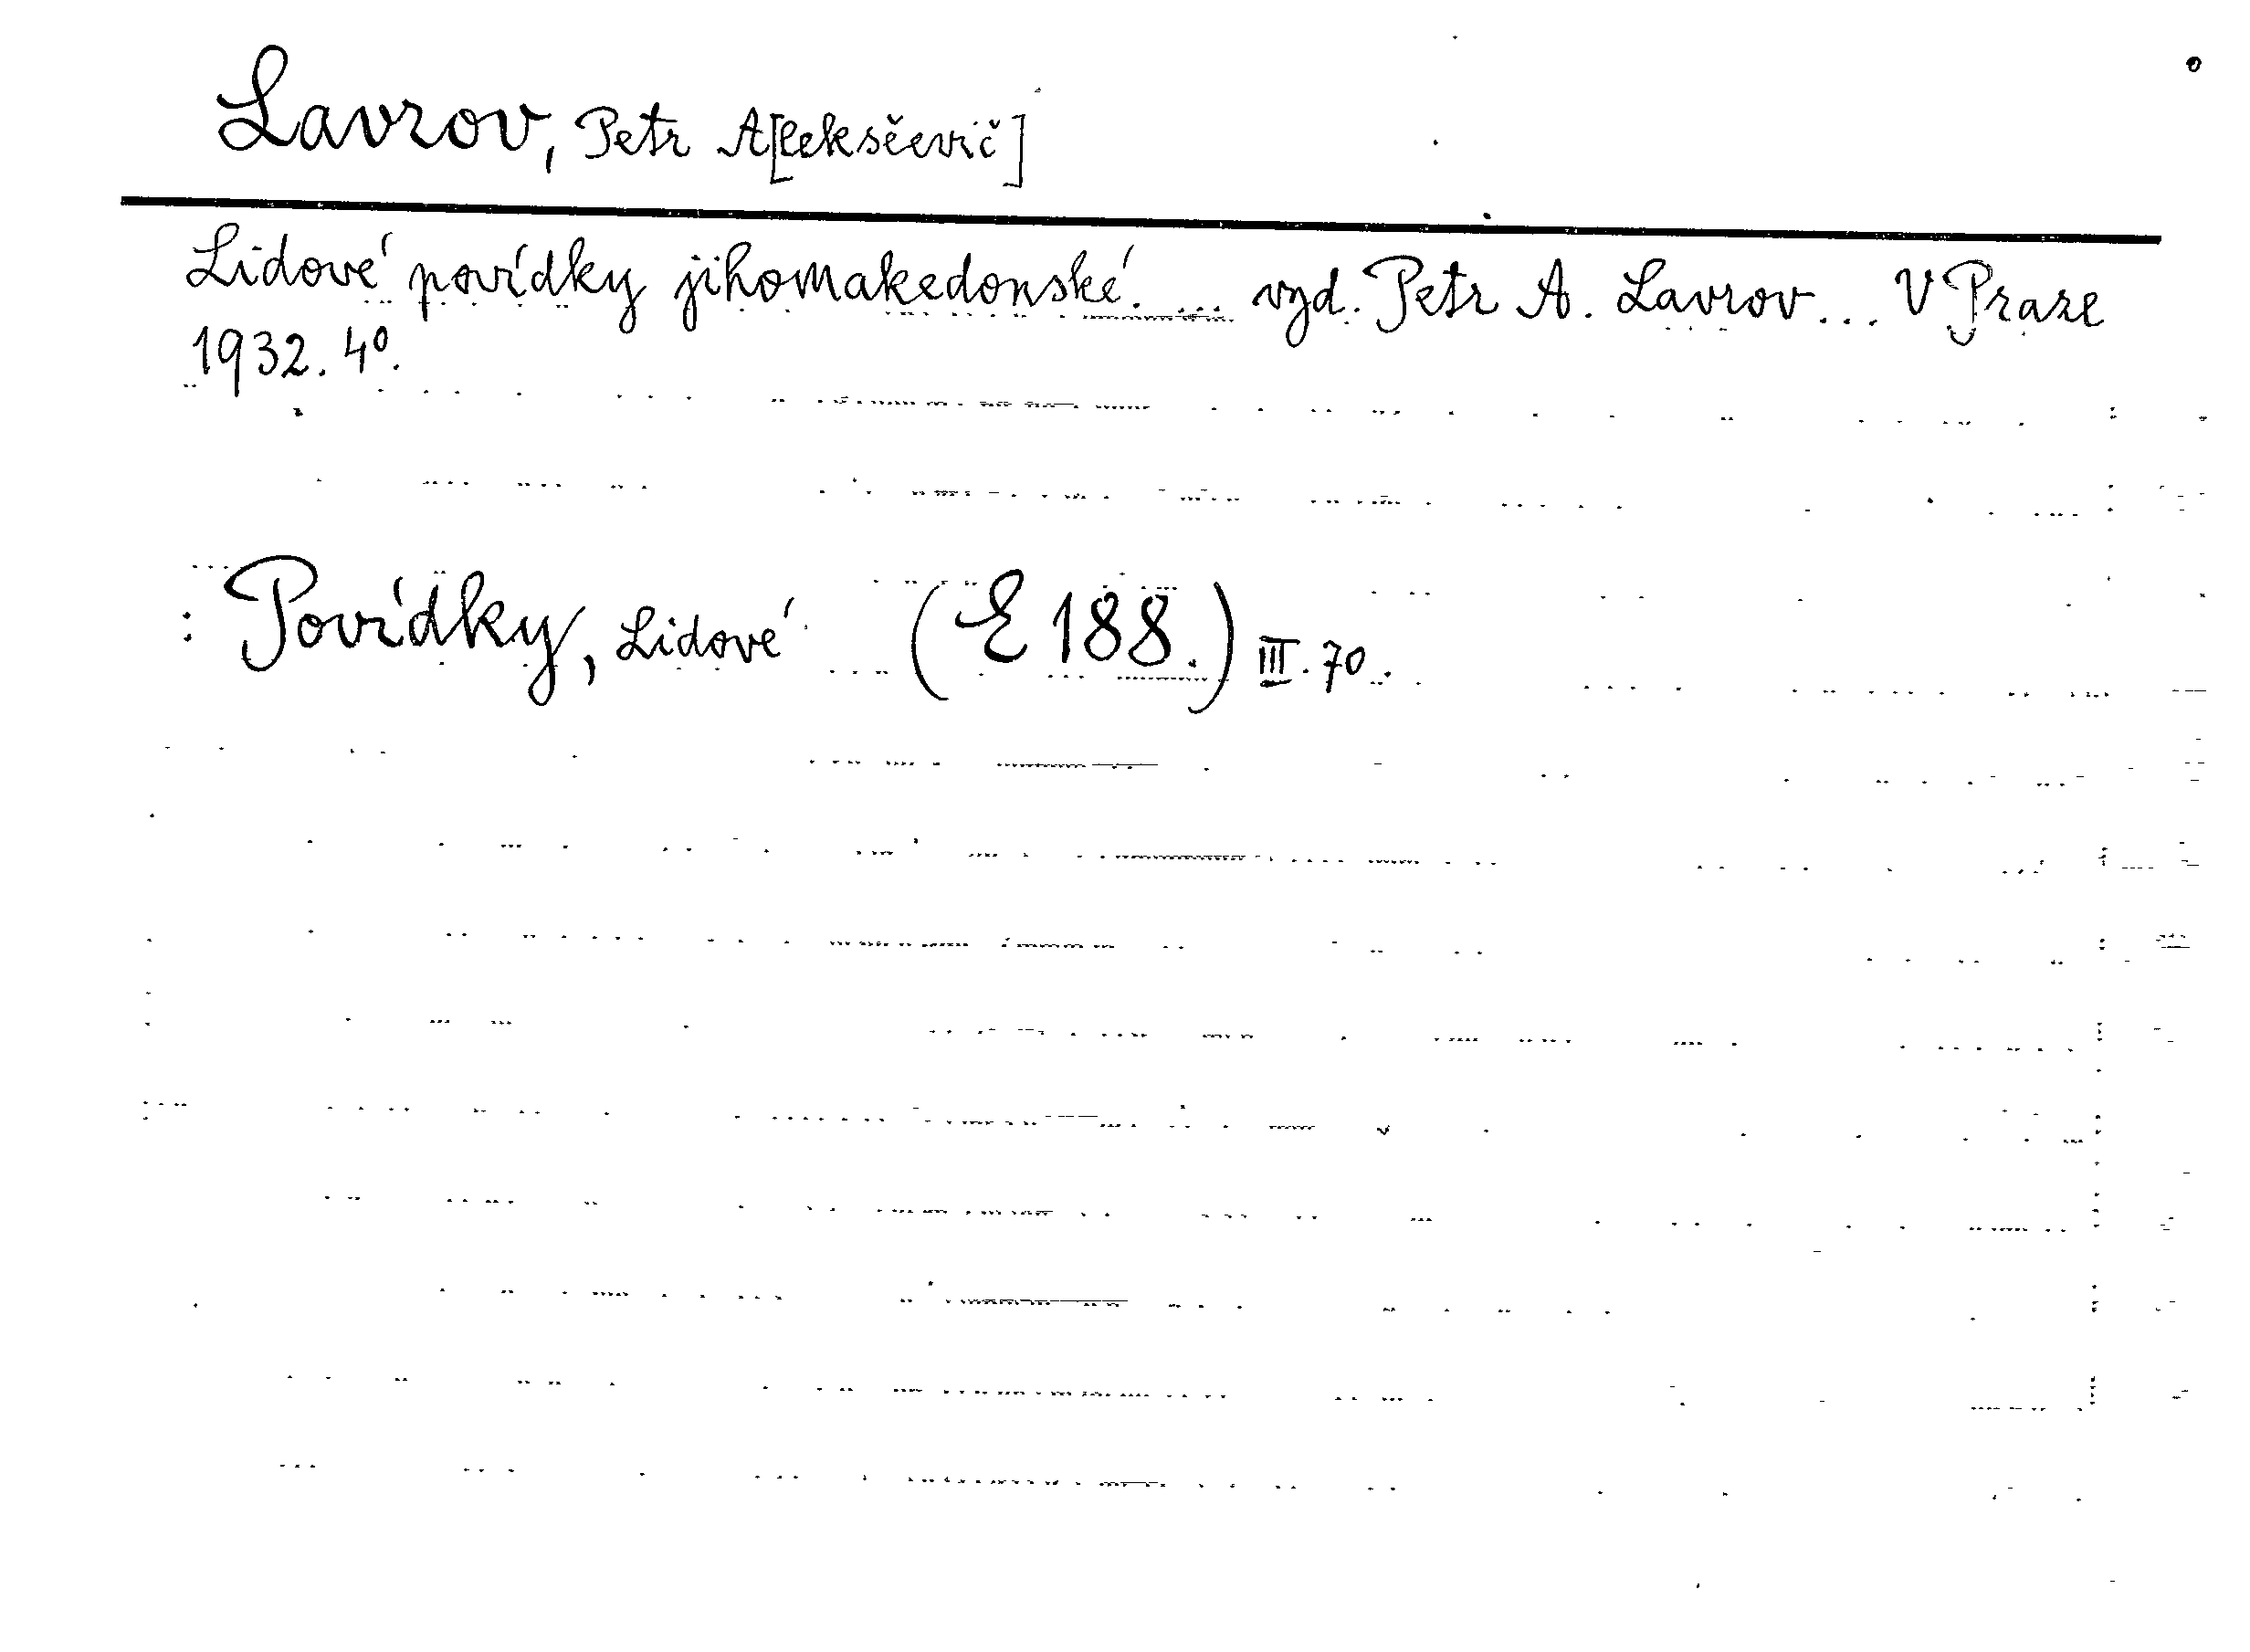 Lavrov, Petr A[leksěevič]
Lidové povídky jihomakedonské. ... vyd. Petr A. Lavrov... V Praze
1932. 4º.
: Povídky, Lidové (E 188.) III. 70.